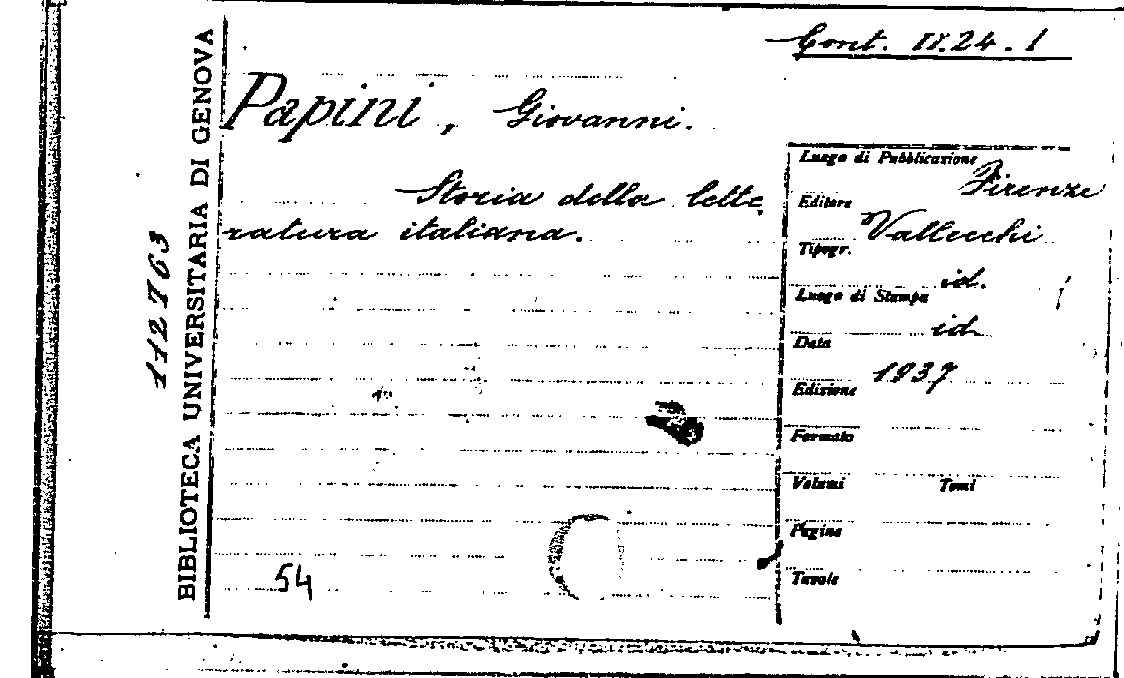 Cont. II.24.1
Papini, Giovanni.
Storia della lette
ratura italiana.
Luogo di Pubblicazione Firenze
Editore Vallecchi
Tipogr. id.
Luogo di Stampa id.
Data 1937
Edizione
Formato
Volumi Tomi
Pagine
Tavole
54
112763
BIBLIOTECA UNIVERSITARIA DI GENOVA